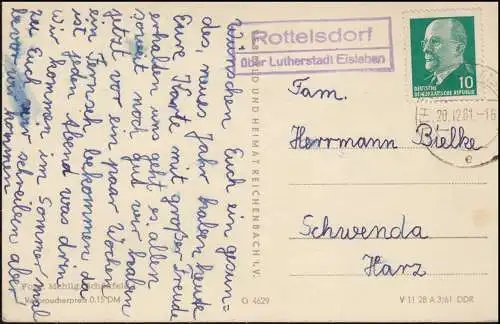 wünschen Euch ein gesun-
des, neues Jahr haben heute
Eure Karte mit großer Freude
erhalten uns geht es allen
soweit noch gut wir haben
jetzt vor ein paar Wochen
ein Fernseh bekommen da
ist jeden Abend was drin
Wir kommen im Sommer mal
zu Euch wir schreiben aber
bevor wir kommen
Rottelsdorf
über Lutherstadt Eisleben
10
DEUTSCHE
DEMOKRATISCHE REPUBLIK
20.12.61.-16
e
Fam.
Herrmann Bielke
Schwenda
Harz
BILD UND HEIMAT REICHENBACH I. V.
Verbraucherpreis 0.15 DM
G 4629
V 11 28 A 3/61 DDR